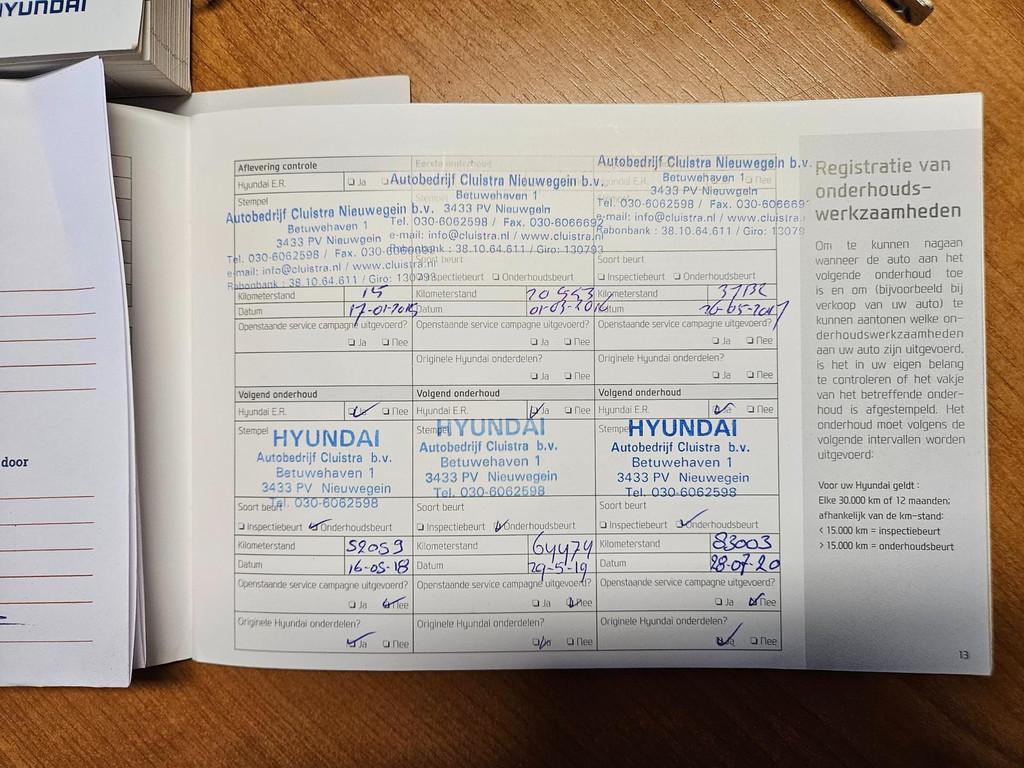 HYUNDAI
door
Aflevering controle
Hyundai E.R. Ja
Stempel
Autobedrijf Cluistra Nieuwegein b.v.
Betuwehaven 1
3433 PV Nieuwgein
Tel. 030-6062598 / Fax. 030-606669
e-mail: info@cluistra.nl / www.cluistra.nl
Rabonbank : 38.10.64.611 / Giro: 130793
Kilometerstand 15
Datum 17-01-2015
Openstaande service campagne uitgevoerd?
Ja Nee
Eerste onderhoud
Autobedrijf Cluistra Nieuwegein b.v.
Betuwehaven 1
3433 PV Nieuwgein
Tel. 030-6062598 / Fax. 030-6066692
e-mail: info@cluistra.nl / www.cluistra.nl
Rabonbank : 38.10.64.611 / Giro: 130793
Soort beurt
Inspectiebeurt Onderhoudsbeurt
Kilometerstand 20553
Datum 01-03-2016
Openstaande service campagne uitgevoerd?
Ja Nee
Originele Hyundai onderdelen?
Ja Nee
Autobedrijf Cluistra Nieuwegein b.v.
Betuwehaven 1
Nee
3433 PV Nieuwgein
Tel. 030-6062598 / Fax. 030-6066692
e-mail: info@cluistra.nl / www.cluistra.
Rabonbank : 38.10.64.611 / Giro: 130793
Soort beurt
Inspectiebeurt Onderhoudsbeurt
Kilometerstand 37132
Datum 26-05-2017
Openstaande service campagne uitgevoerd?
Ja Nee
Originele Hyundai onderdelen?
Ja Nee
Volgend onderhoud
Hyundai E.R. Ja Nee
Stempel
HYUNDAI
Autobedrijf Cluistra b.v.
Betuwehaven 1
3433 PV Nieuwegein
Tel. 030-6062598
Soort beurt
Inspectiebeurt Onderhoudsbeurt
Kilometerstand 52059
Datum 16-05-18
Openstaande service campagne uitgevoerd?
Ja Nee
Originele Hyundai onderdelen?
Ja Nee
Volgend onderhoud
Hyundai E.R. Ja Nee
Stempel
HYUNDAI
Autobedrijf Cluistra b.v.
Betuwehaven 1
3433 PV Nieuwegein
Tel. 030-6062598
Soort beurt
Inspectiebeurt Onderhoudsbeurt
Kilometerstand 64479
Datum 29-5-19
Openstaande service campagne uitgevoerd?
Ja Nee
Originele Hyundai onderdelen?
Ja Nee
Volgend onderhoud
Hyundai E.R. Ja Nee
Stempel
HYUNDAI
Autobedrijf Cluistra b.v.
Betuwehaven 1
3433 PV Nieuwegein
Tel. 030-6062598
Soort beurt
Inspectiebeurt Onderhoudsbeurt
Kilometerstand 83003
Datum 28-07-20
Openstaande service campagne uitgevoerd?
Ja Nee
Originele Hyundai onderdelen?
Ja Nee
Registratie van
onderhouds-
werkzaamheden
Om te kunnen nagaan
wanneer de auto aan het
volgende onderhoud toe
is en om (bijvoorbeeld bij
verkoop van uw auto) te
kunnen aantonen welke on-
derhoudswerkzaamheden
aan uw auto zijn uitgevoerd,
is het in uw eigen belang
te controleren of het vakje
van het betreffende onder-
houd is afgestempeld. Het
onderhoud moet volgens de
volgende intervallen worden
uitgevoerd:
Voor uw Hyundai geldt :
Elke 30.000 km of 12 maanden;
afhankelijk van de km-stand:
< 15.000 km = inspectiebeurt
> 15.000 km = onderhoudsbeurt
13